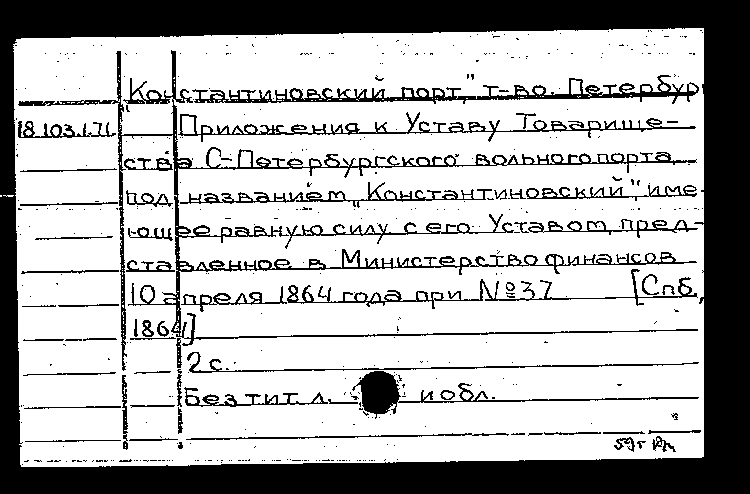 "Константиновский порт," т-во. Петербур
18.103.1.71. Приложения к Уставу Товарище-
ства С-Петербургского вольного порта
под названием „Константиновский", име-
ющее равную силу с его Уставом, пред-
ставленное в Министерство финансов
10 апреля 1864 года при №37 [Спб.,
1864]
2 с.
Без тит. л. и обл.